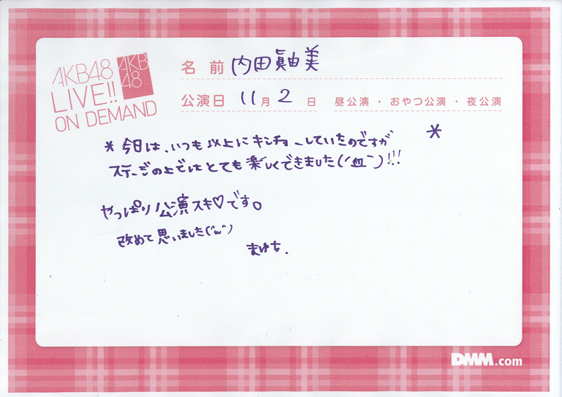 AKB48
LIVE!!
ON DEMAND
AKB
48
名 前 内田眞由美
公演日 11月 2 日 昼公演・おやつ公演・夜公演
* 今日は、いつも以上にキンチョーしていたのですが *
ステージの上ではとても楽しくできました(´皿`)!!!
やっぱり公演スキ♡です。
改めて思いました(´ω`)
まゆち.
DMM.com